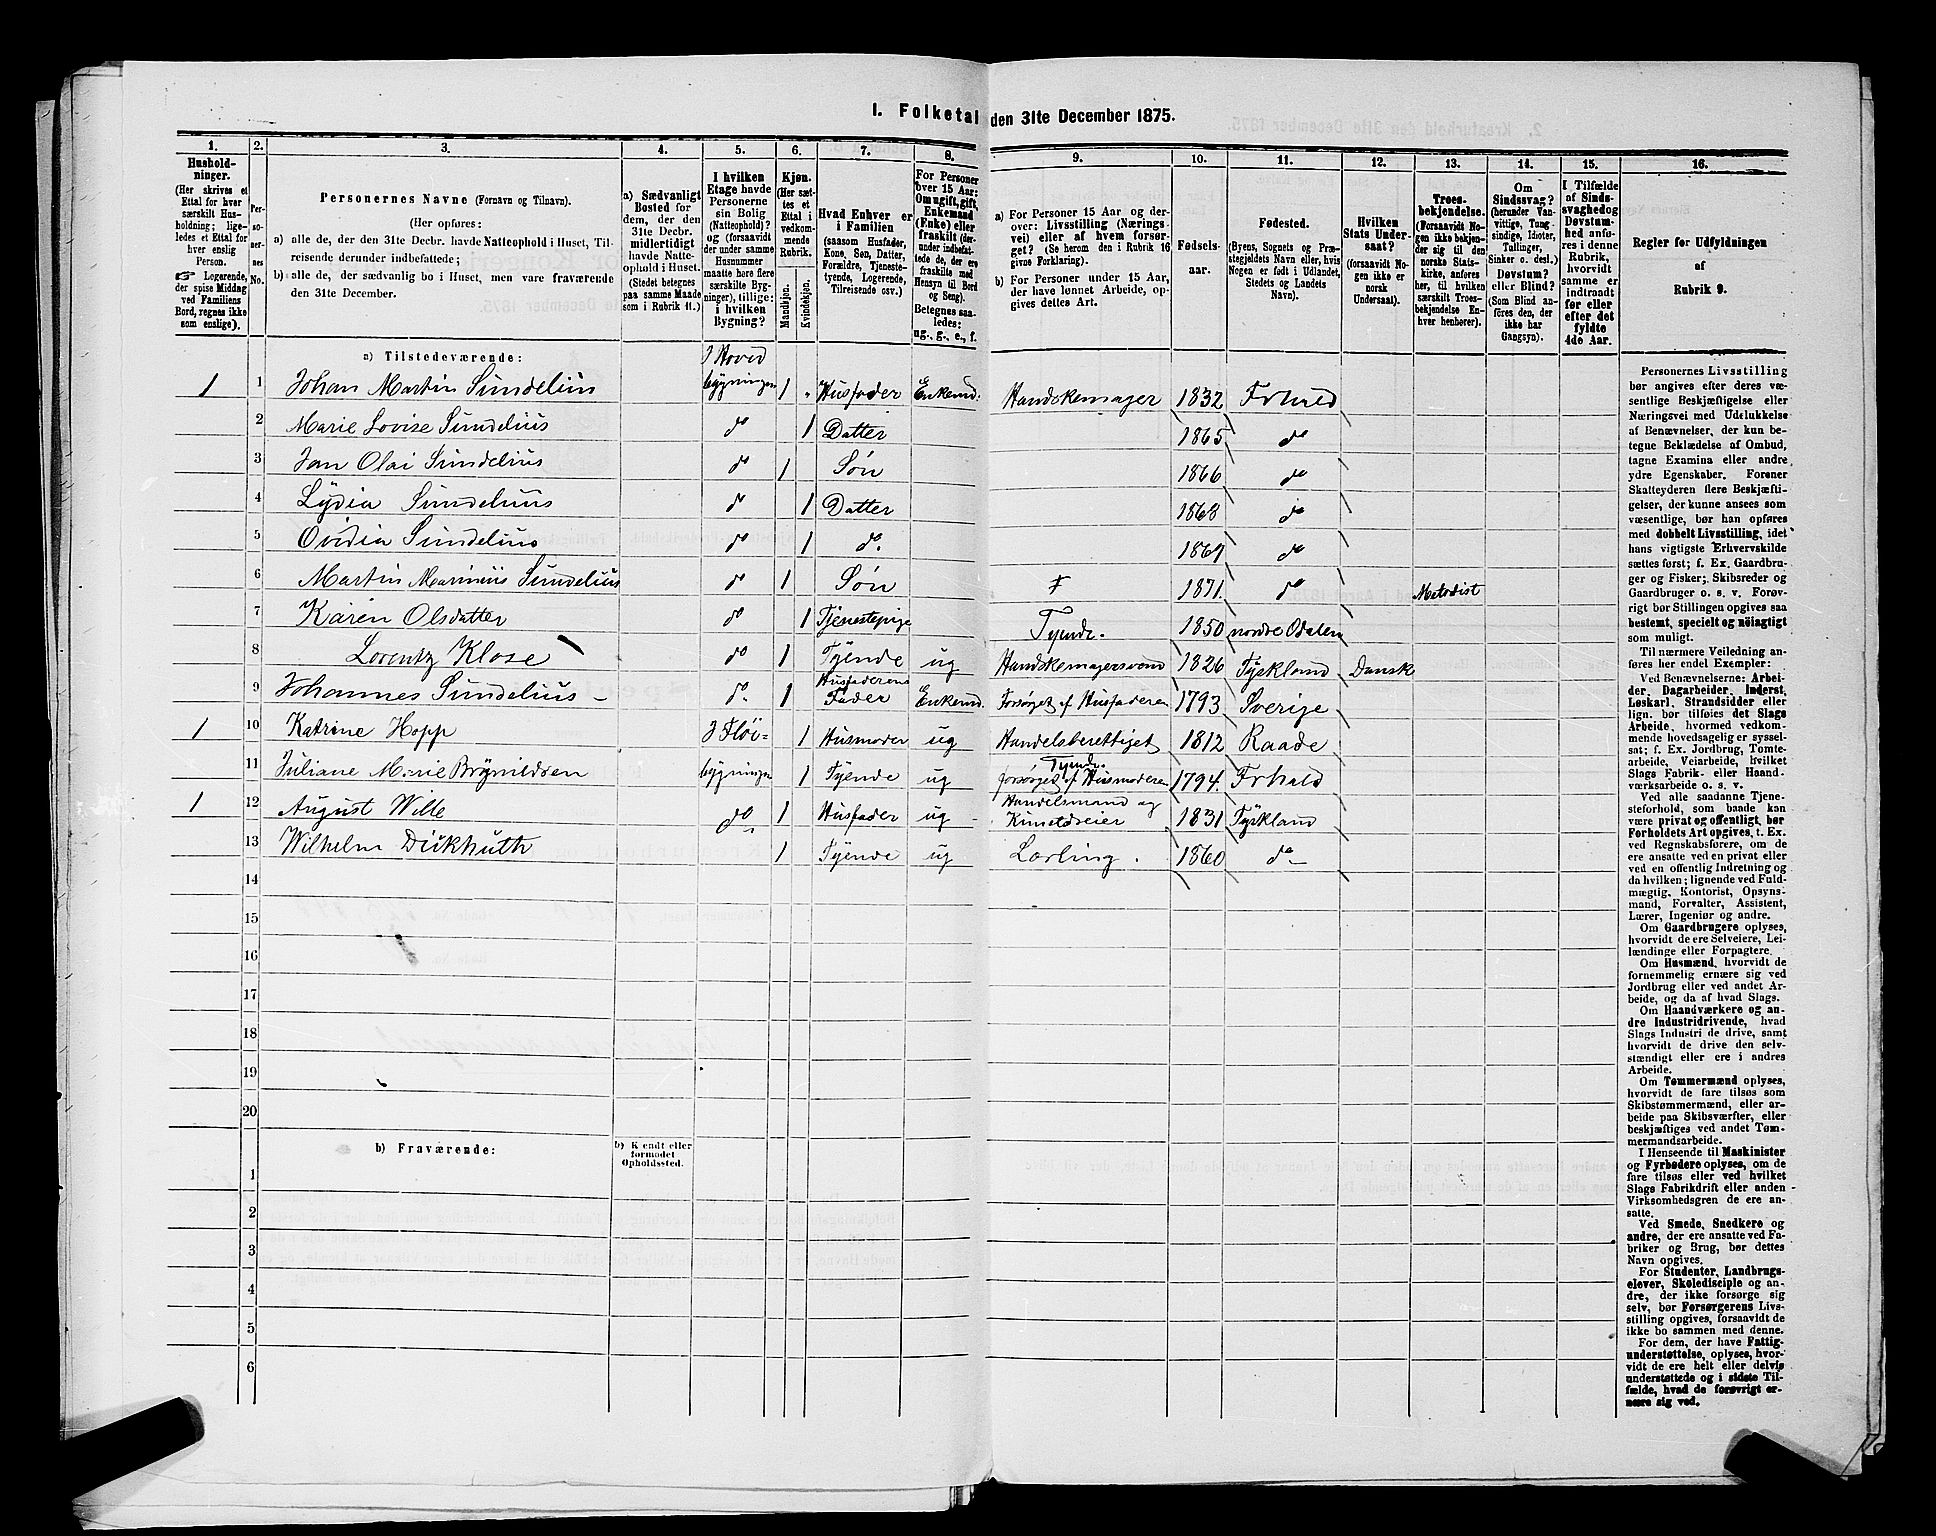 I. Folketal den 31te December 1875.
1. 2. 3. 4. 5. 6. 7. 8. 9. 10. 11. 12. 13. 14. 15. 16.
Husholdninger.
(Her skrives et
Ettal for hver
særskilt Husholdning;
ligeledes et Ettal for
hver enslig
Person.
☞ Logerende,
der spise Middag
ved Familiens
Bord, regnes ikke
som enslige).
Personernes No.
Personernes Navne (Fornavn og Tilnavn).
(Her opføres:
a) alle de, der den 31te Decbr. havde Natteophold i Huset, Tilreisende derunder indbefattede;
b) alle de, der sædvanlig bo i Huset, men vare fraværende
den 31te December.
a) Sædvanligt
Bosted for
dem, der den
31te Decbr.
midlertidigt
havde Natteophold i Huset.
(Stedet betegnes
paa samme Maade
som i Rubrik 11.)
I hvilken
Etage havde
Personerne
sin Bolig
(Natteophold)?
og (forsaavidt
der under samme
Husnummer
maatte høre flere
særskilte Bygninger), tillige:
i hvilken
Bygning?
Kjøn.
(Her sættes et
Ettal i
vedkommende
Rubrik.
Mandkjøn.
Kvindekjøn.
Hvad Enhver er
i Familien
(saasom Husfader,
Kone, Søn, Datter,
Forældre, Tjenestetyende, Logerende,
Tilreisende osv.)
For Personer
over 15 Aar:
Om ugift, gift,
Enkemand
(Enke) eller
fraskilt (derunder indbefattede de, der ere
fraskilte med
Hensyn til Bord
og Seng).
Betegnes saaledes:
ug., g., e., f.
a) For Personer 15 Aar og derover: Livsstilling (Næringsvei) eller af hvem forsørget? (Se herom den i Rubrik 16
givne Forklaring).
b) For Personer under 15 Aar,
der have lønnet Arbeide, opgives dettes Art.
Fødselsaar.
Fødested.
(Byens, Sognets og Præstegjeldets Navn, eller, hvis
Nogen er født i Udlandet,
Stedets og Landets
Navn).
Hvilken
Stats Undersaat?
(forsaavidt Nogen ikke er
norsk
Undersaat).
Troesbekjendelse.
(Forsaavidt Nogen ikke bekjender sig til den
norske Statskirke, anføres
her, til hvilken
særskilt Troesbekjendelse Enhver henhører).
Om
Sindssvag?
(herunder Vanvittige, Tungsindige, Idioter,
Tullinger,
Sinker o. desl.)
Døvstum?
eller Blind?
(Som Blind anføres den, der
ikke har
Gangsyn).
I Tilfælde
af Sindssvaghed og
Døvstumhed anføres i denne
Rubrik,
hvorvidt
samme er
indtraadt
før eller
efter det
fyldte
4de Aar.
Regler for Udfyldningen
af
Rubrik 9.
a) Tilstedeværende:
1 1 Johan Martin Sundelius I Hovedbygningen 1 Husfader Enkemd. Handskemager 1832 Frhald
2 Marie Lovise Sundelius do 1 Datter 1865 do
3 Jan Olai Sundelius do 1 Søn 1866 do
4 Lydia Sundelius do 1 Datter 1868 do
5 Ovidia Sundelius do 1 do. 1869 do
6 Martin Marinius Sundelius do 1 Søn 1871 do Metodist
7 Karen Olsdatter do 1 Tjenestepige Tyende. 1850 nordre Odalen
8 Lorentz Klose do 1 Tyende ug Handskemagersvend 1826 Tyskland Dansk
9 Johannes Sundelius do. 1 Husfaderens Fader Enkemd. Forsørget af Husfaderen 1793 Sverige
1 10 Katrine Hopp I Fløi= 1 Husmoder ug Handelsberettiget 1812 Raade
11 Juliane Marie Brynildsen bygningen 1 Tyende ug Tyende. forsørget af Husmoderen 1794. Frhald
1 12 August Wille do 1 Husfader ug Handelsmand og Kunstdreier 1831 Tyskland
13 Wilhelm Dickhuth 1 Tyende ug Lærling. 1860 do
14
15
16
17
18
19
20
b) Fraværende:
b) Kjendt eller
formodet
Opholdssted.
1
2
3
4
5
6
Personernes Livsstilling
bør angives efter deres væsentlige Beskjæftigelse eller
Næringsvei med Udelukkelse
af Benævnelser, der kun betegne Beklædelse af Ombud,
tagne Examina eller andre
ydre Egenskaber. Forener
Skatteyderen flere Beskjæftigelser, der kunne ansees som
væsentlige, bør han opføres
med dobbelt Livsstilling, idet
hans vigtigste Erhvervskilde
sættes først; f. Ex. Gaardbruger og Fisker; Skibsreder og
Gaardbruger o. s. v. Forøvrigt bør Stillingen opgives saa
bestemt, specielt og nøiagtigt
som muligt.
Til nærmere Veiledning anføres her endel Exempler:
Ved Benævnelserne: Arbeider, Dagarbeider, Inderst,
Løskarl, Strandsidder eller
lign. bør tilføies det Slags
Arbeide, hvormed vedkommende hovedsagelig er sysselsat; f. Ex. Jordbrug, Tomtearbeide, Veiarbeide, hvilket
Slags Fabrik- eller Haandværksarbeide o. s. v.
Ved alle saadanne Tjenesteforhold, som baade kan
være privat og offentligt, bør
Forholdets Art opgives, t. Ex.
ved Regnskabsførere, om de
ere ansatte ved en privat eller
ved en offentlig Indretning og
da hvilken; lignende ved Fuldmægtig, Kontorist, Opsynsmand, Forvalter, Assistent,
Lærer, Ingeniør og andre.
Om Gaardbrugere oplyses,
hvorvidt de ere Selveiere, Leilændinge eller Forpagtere.
Om Husmænd, hvorvidt de
fornemmelig ernære sig ved
Jordbrug eller ved andet Arbeide, og da af hvad Slags.
Om Haandværkere og andre Industridrivende, hvad
Slags Industri de drive, samt
hvorvidt de drive den selvstændigt eller ere i andres
Arbeide.
Om Tømmermænd oplyses,
hvorvidt de fare tilsøs som
Skibstømmermænd, eller arbeide paa Skibsværfter, eller
beskjæftiges ved andet Tømmermandsarbeide.
I Henseende til Maskinister
og Fyrbødere oplyses, om de
fare tilsøs eller ved hvilket
Slags Fabrikdrift eller anden
Virksomhedsgren de ere ansatte.
Ved Smede, Snedkere og
andre, der ere ansatte ved Fabriker og Brug, bør dettes
Navn opgives.
For Studenter, Landbrugselever, Skoledisciple og andre, der ikke forsørge sig
selv, bør Forsørgerens Livsstilling opgives, forsaavidt de
ikke bo sammen med denne.
For dem, der have Fattigunderstøttelse, oplyses, hvorvidt de ere helt eller delvis
understøttede og i sidste Tilfælde, hvad de forøvrigt ernære sig ved.